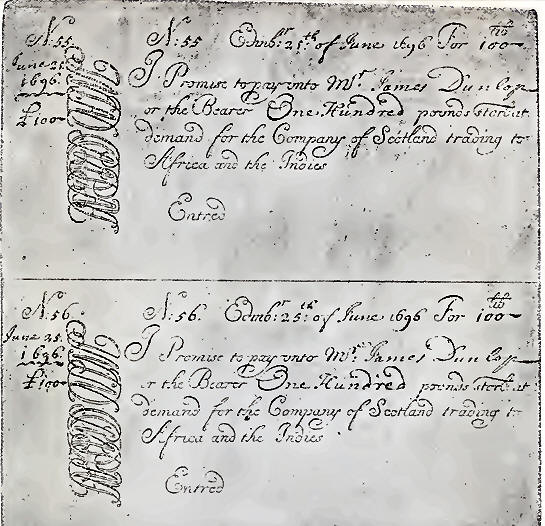 N:55 N:55 Edinbr 21th of June 1696 For 100 lib
June 21
1696
£100
I Promise to pay unto Mr. James Dunlop
or the Bearer One Hundred pounds sterl: at
demand for the Company of Scotland trading to
Africa and the Indies
Entred
N:56 N:56 Edinbr 25th of June 1696 For 100 lib
June 25
1696
£100
I Promise to pay unto Mr. James Dunlop
or the Bearer One Hundred pounds sterl: at
demand for the Company of Scotland trading to
Africa and the Indies
Entred